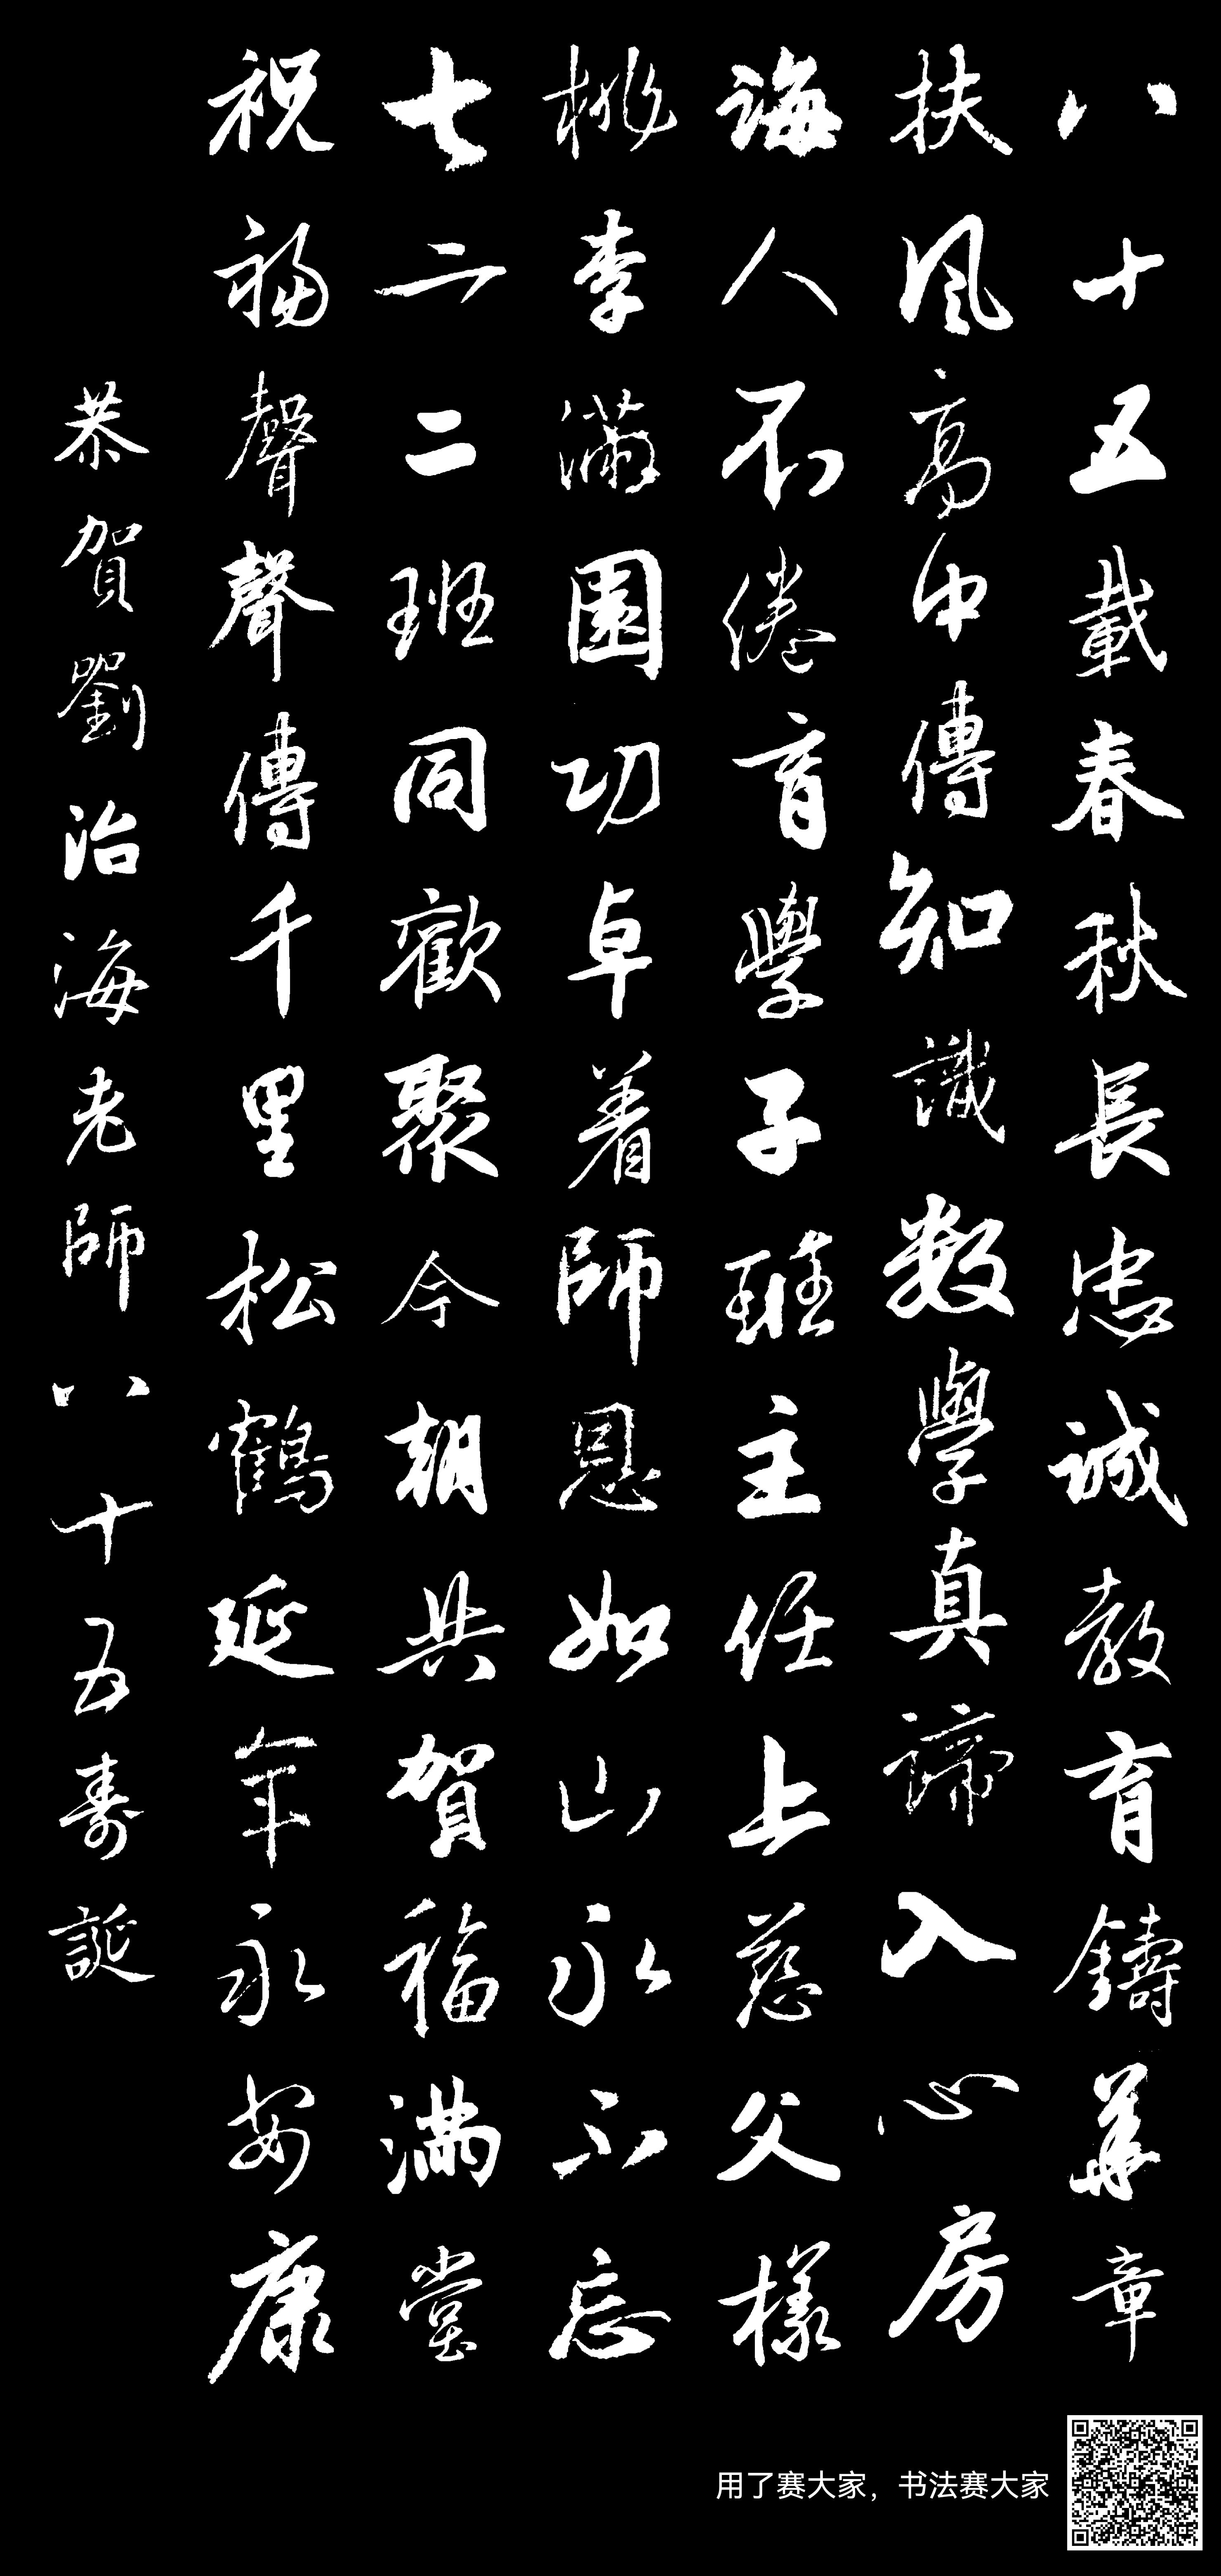 八十五載春秋長忠誠教育鑄華章
扶風高中傳知識数學真諦入心房
誨人不倦育學子班主任上慈父樣
桃李滿園功卓着師恩如山永不忘
七六二班同歡聚今朝共賀福满堂
祝福聲聲傳千里松鶴延年永安康
恭賀劉治海老師八十五壽誕
用了赛大家，书法赛大家